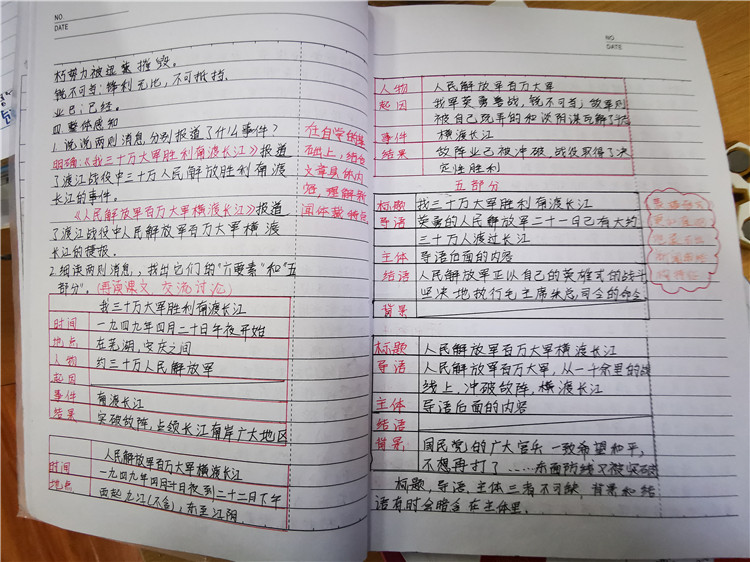 NO
DATE
朽势力被迅速摧毁。
锐不可当:锋利无比,不可抵挡。
业已:已经。
四.整体感知
1.说说两则消息,分别报道了什么事件?
明确:《我三十万大军胜利南渡长江》报道
了渡江战役中三十万人民解放胜利南渡
长江的事件。
《人民解放军百万大军横渡长江》报道
了渡江战役中人民解放军百万大军横渡
长江的捷报。
2.细读两则消息,找出它们的“六要素”和“五
部分”。(再读课文 交流讨论)
在自学的基
础上,结合
文章具体内
容,理解新
闻体裁特色
我三十万大军胜利南渡长江
时间 一九四九年四月二十日午夜开始
地点 在芜湖,安庆之间
人物 约三十万人民解放军
起因
事件 南渡长江
结果 突破敌阵,占领长江南岸广大地区
人民解放军百万大军横渡长江
时间 一九四九年四月二十日夜到二十二日下午
地点 西起九江(不含),东至江阴
NO
DATE
人物 人民解放军百万大军
起因 我军英勇善战,锐不可当;敌军则
被自己既弄的和谈阴谋瓦解了
事件 横渡长江
结果 敌阵业已被冲破,战役取得了决
定性胜利
五部分
标题 我三十万大军胜利南渡长江
导语 英勇的人民解放军二十一日已有大约
三十万人渡过长江
主体 导语后面的内容
结语 人民解放军正以自己的英雄式的战斗
坚决地执行毛主席朱总司令的命令
背景
标题 人民解放军百万大军横渡长江
导语 人民解放军百万大军,从一千余里的战
线上,冲破敌阵,横渡长江
主体 导语后面的内容
结语
背景 国民党的广大官兵一致希望和平,
不想再打了……东面防线又被突破
标题,导语,主体三者不可缺,背景和结
语有时会暗含在主体里。